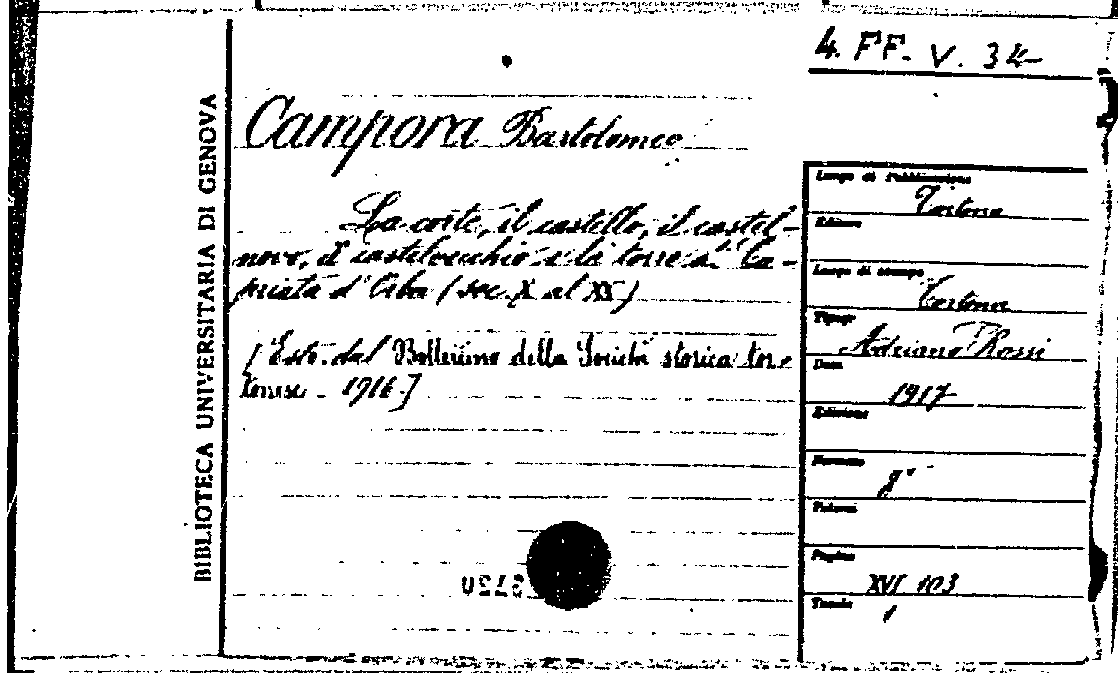 4. FF. V. 34
BIBLIOTECA UNIVERSITARIA DI GENOVA
Campora Bartolomeo
La corte, il castello, il castel-
novo, il castelvecchio e la torre di Ca-
priata d'Orba (sec. X al XX)
[Estr. dal Bollettino della Società storica tor-
tonese - 1916.]
Luogo di Pubblicazione
Tortona
Editore
Luogo di stampa
Tortona
Tipogr
Adriano Rossi
Data
1917
Edizione
Formato
8°
Volumi
Pagine
XVI 103
Tavole
1